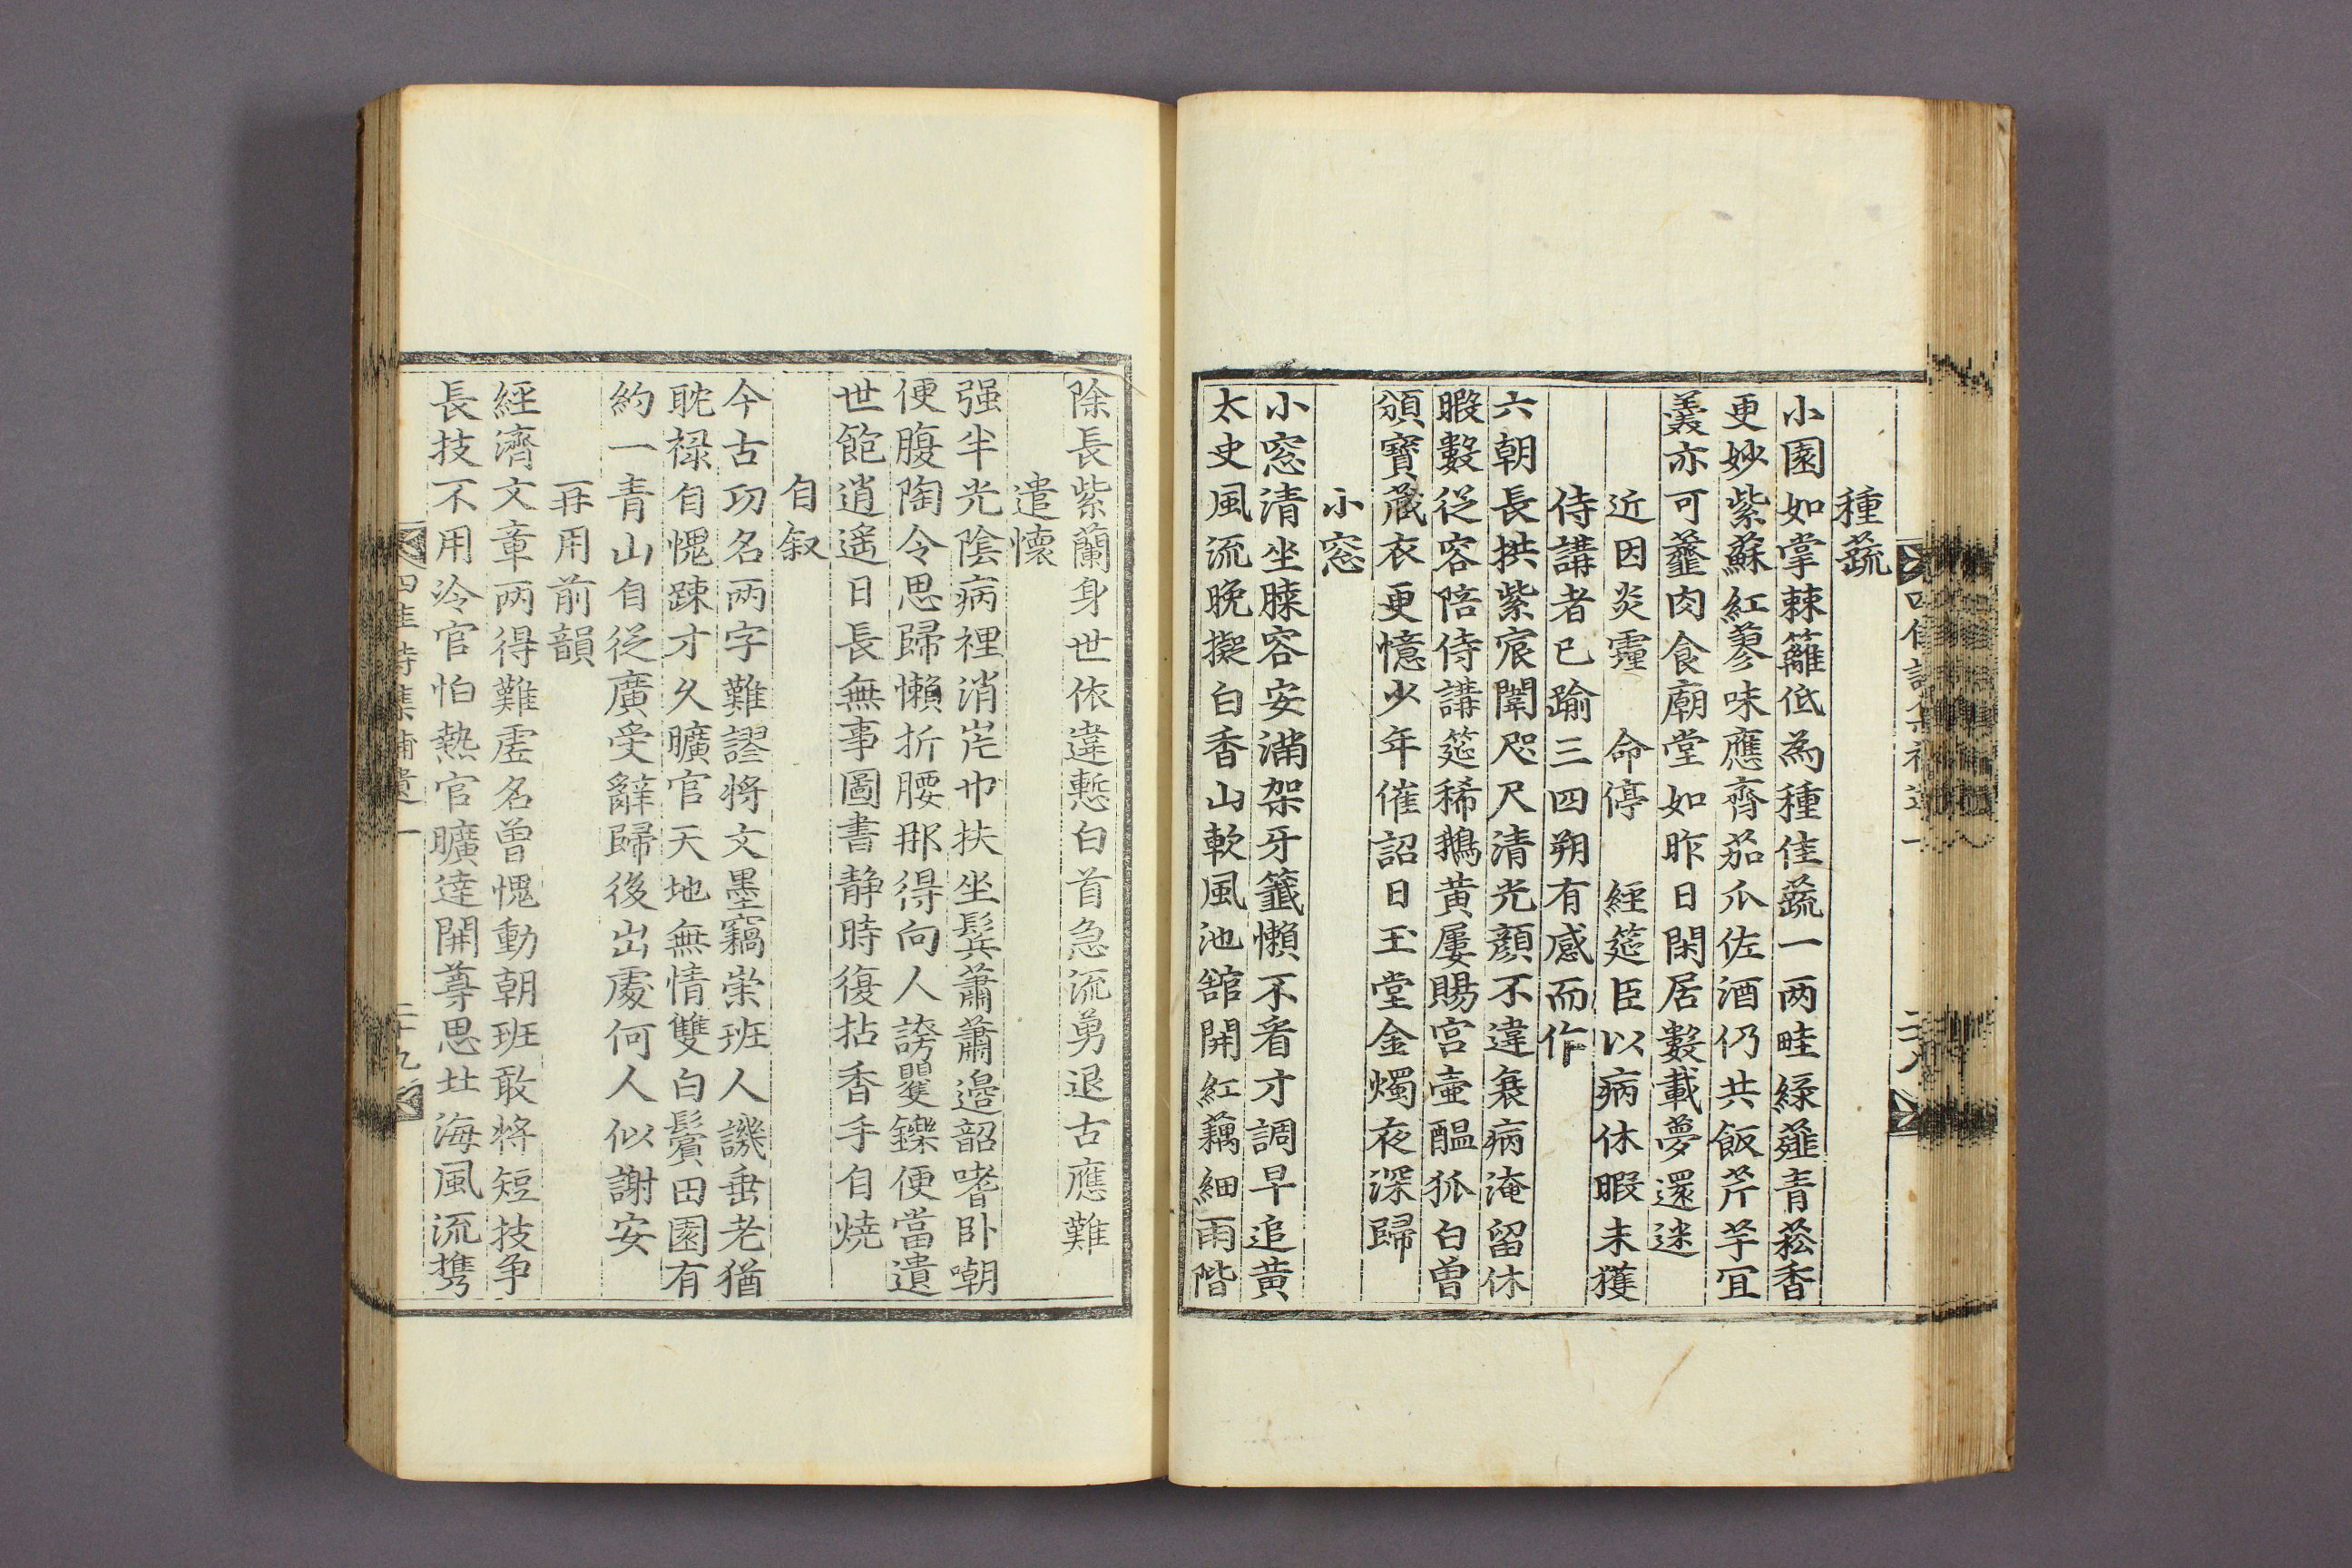 種蔬
小園如掌棘籬低為種佳蔬一兩畦綠薤青菘香
更妙紫蘇紅蓼味應齊茄爪佐酒仍共飯芹芋宜
羹亦可虀肉食廟堂如昨日閑居數載夢還迷
近因炎霾 命停 經筵臣以病休暇未獲
侍講者已踰三四朔有感而作
六朝長拱紫宸闈咫尺清光顔不違衰病淹留休
暇數從容陪侍講筵稀鵝黃屢賜宮壷醞狐白曾
頒寶藏衣更憶少年催詔日玉堂金燭夜深歸
小窓
小窓清坐膝容安滿架牙籤懶不看才調早追黃
太史風流晚擬白香山軟風池舘開紅藕細雨階
除長紫蘭身世依違慙白首急流勇退古應難
遣懷
强半光陰病裡消岸巾扶坐鬂蕭蕭邉韶嗜卧嘲
便腹陶令思歸懶折腰那得向人誇矍鑠便當遺
世飽逍遙日長無事圖書静時復拈香手自燒
自叙
今古功名兩字難謬將文墨竊崇班人譏垂老猶
耽禄自愧踈才久曠官天地無情雙白鬢田園有
約一青山自從廣受辭歸後出處何人似謝安
再用前韻
經濟文章两得難虗名曾愧動朝班敢將短技爭
長技不用冷官怕熱官曠達開尊思北海風流携
四佳詩集補遺一
二十九